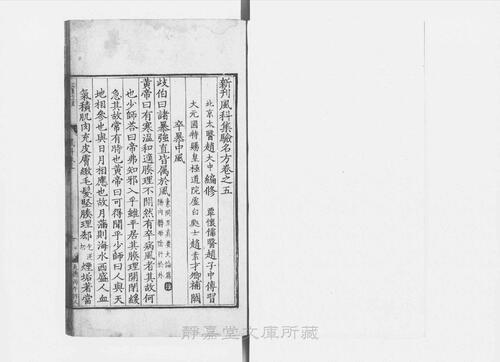 新刊風科集驗名方卷之五
北京太醫趙大中編修 覃懷儒醫趙子中傳習
大元國特賜皇極道院虛白處士趙素才卿補闕
卒暴中風
岐伯曰諸暴強直皆屬於風
黃帝曰有寒溫和適腠理不開然有卒病風者其故何
也少師荅曰帝弗知邪入乎雖平居其腠理開閉緩
急其故常有時也黃帝曰可得聞乎少師曰人與天
地相參也與日月相應也故月滿則海水西盛人血
氣積肌肉充皮膚緻毛髮堅腠理郄煙垢著當
靜嘉堂文庫所藏